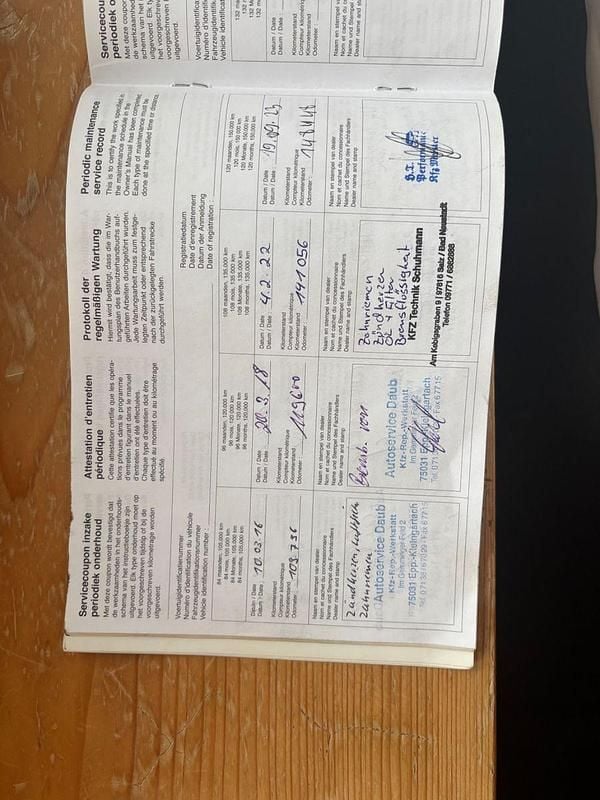 Servicecoupon inzake
periodiek onderhoud
Met deze coupon wordt bevestigd dat
de werkzaamheden in het onderhouds-
schema van het instructieboekje zijn
uitgevoerd. Elk type onderhoud moet op
het voorgeschreven tijdstip of bij de
voorgeschreven kilometrage worden
uitgevoerd.
Attestation d'entretien
périodique
Cette attestation certifie que les opéra-
tions prévues dans le programme
d'entretien figurant dans le manuel
d'entretien ont été effectuées.
Chaque type d'entretien doit être
effectué au moment ou au kilométrage
spécifié.
Protokoll der
regelmäßigen Wartung
Hiermit wird bestätigt, dass die im War-
tungsplan des Benutzerhandbuchs auf-
geführten Arbeiten durchgeführt wurden.
Jede Wartungsarbeit muss zum festge-
legten Zeitpunkt oder entsprechend
nach der zurückgelegten Fahrstrecke
durchgeführt werden.
Periodic maintenance
service record
This is to certify the work specified in
the maintenance schedule in the
Owner's Manual has been completed.
Each type of maintenance must be
done at the specified time or distance.
Voertuigidentificatienummer
Numéro d'identification du véhicule
Fahrzeugidentifikationsnummer
Vehicle identification number
Registratiedatum
Date d'enregistrement
Datum der Anmeldung
Date of registration :
84 maanden, 105.000 km
84 mois, 105.000 km
84 Monate, 105.000 km
84 months, 105,000 km
Datum / Date :
Datum / Date :
10.03.16
Kilometerstand
Compteur kilométrique
Kilometerstand
Odometer :
103.736
Naam en stempel van dealer
Nom et cachet du concessionnaire
Name und Stempel des Fachhändlers
Dealer name and stamp
Zahnriemen
Autoservice Daub
Kfz.-Rep.-Werkstatt
75031 Epp.-Kleingartach
96 maanden, 120.000 km
96 mois, 120.000 km
96 Monate, 120.000 km
96 months, 120,000 km
Datum / Date :
Datum / Date :
20.3.18
Kilometerstand
Compteur kilométrique
Kilometerstand
Odometer :
119600
Naam en stempel van dealer
Nom et cachet du concessionnaire
Name und Stempel des Fachhändlers
Dealer name and stamp
Autoservice Daub
Kfz.-Rep.-Werkstatt
75031 Epp.-Kleingartach
108 maanden, 135.000 km
108 mois, 135.000 km
108 Monate, 135.000 km
108 months, 135,000 km
Datum / Date :
Datum / Date :
4.2.22
Kilometerstand
Compteur kilométrique
Kilometerstand
Odometer :
141056
Naam en stempel van dealer
Nom et cachet du concessionnaire
Name und Stempel des Fachhändlers
Dealer name and stamp
Zahnriemen
Zündkerzen
Öl + Filter
Bremsflüssigkeit
KFZ Technik Schuhmann
Am Kobigsgraben 9 | 97616 Salz / Bad Neustadt
Telefon 09771 / 6882888
120 maanden, 150.000 km
120 mois, 150.000 km
120 Monate, 150.000 km
120 months, 150,000 km
Datum / Date :
Datum / Date :
19.09.23
Kilometerstand
Compteur kilométrique
Kilometerstand
Odometer :
Naam en stempel van dealer
Nom et cachet du concessionnaire
Name und Stempel des Fachhändlers
Dealer name and stamp
Performance
Kfz Meister